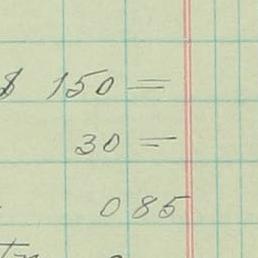 $ 150 =
30 =
085